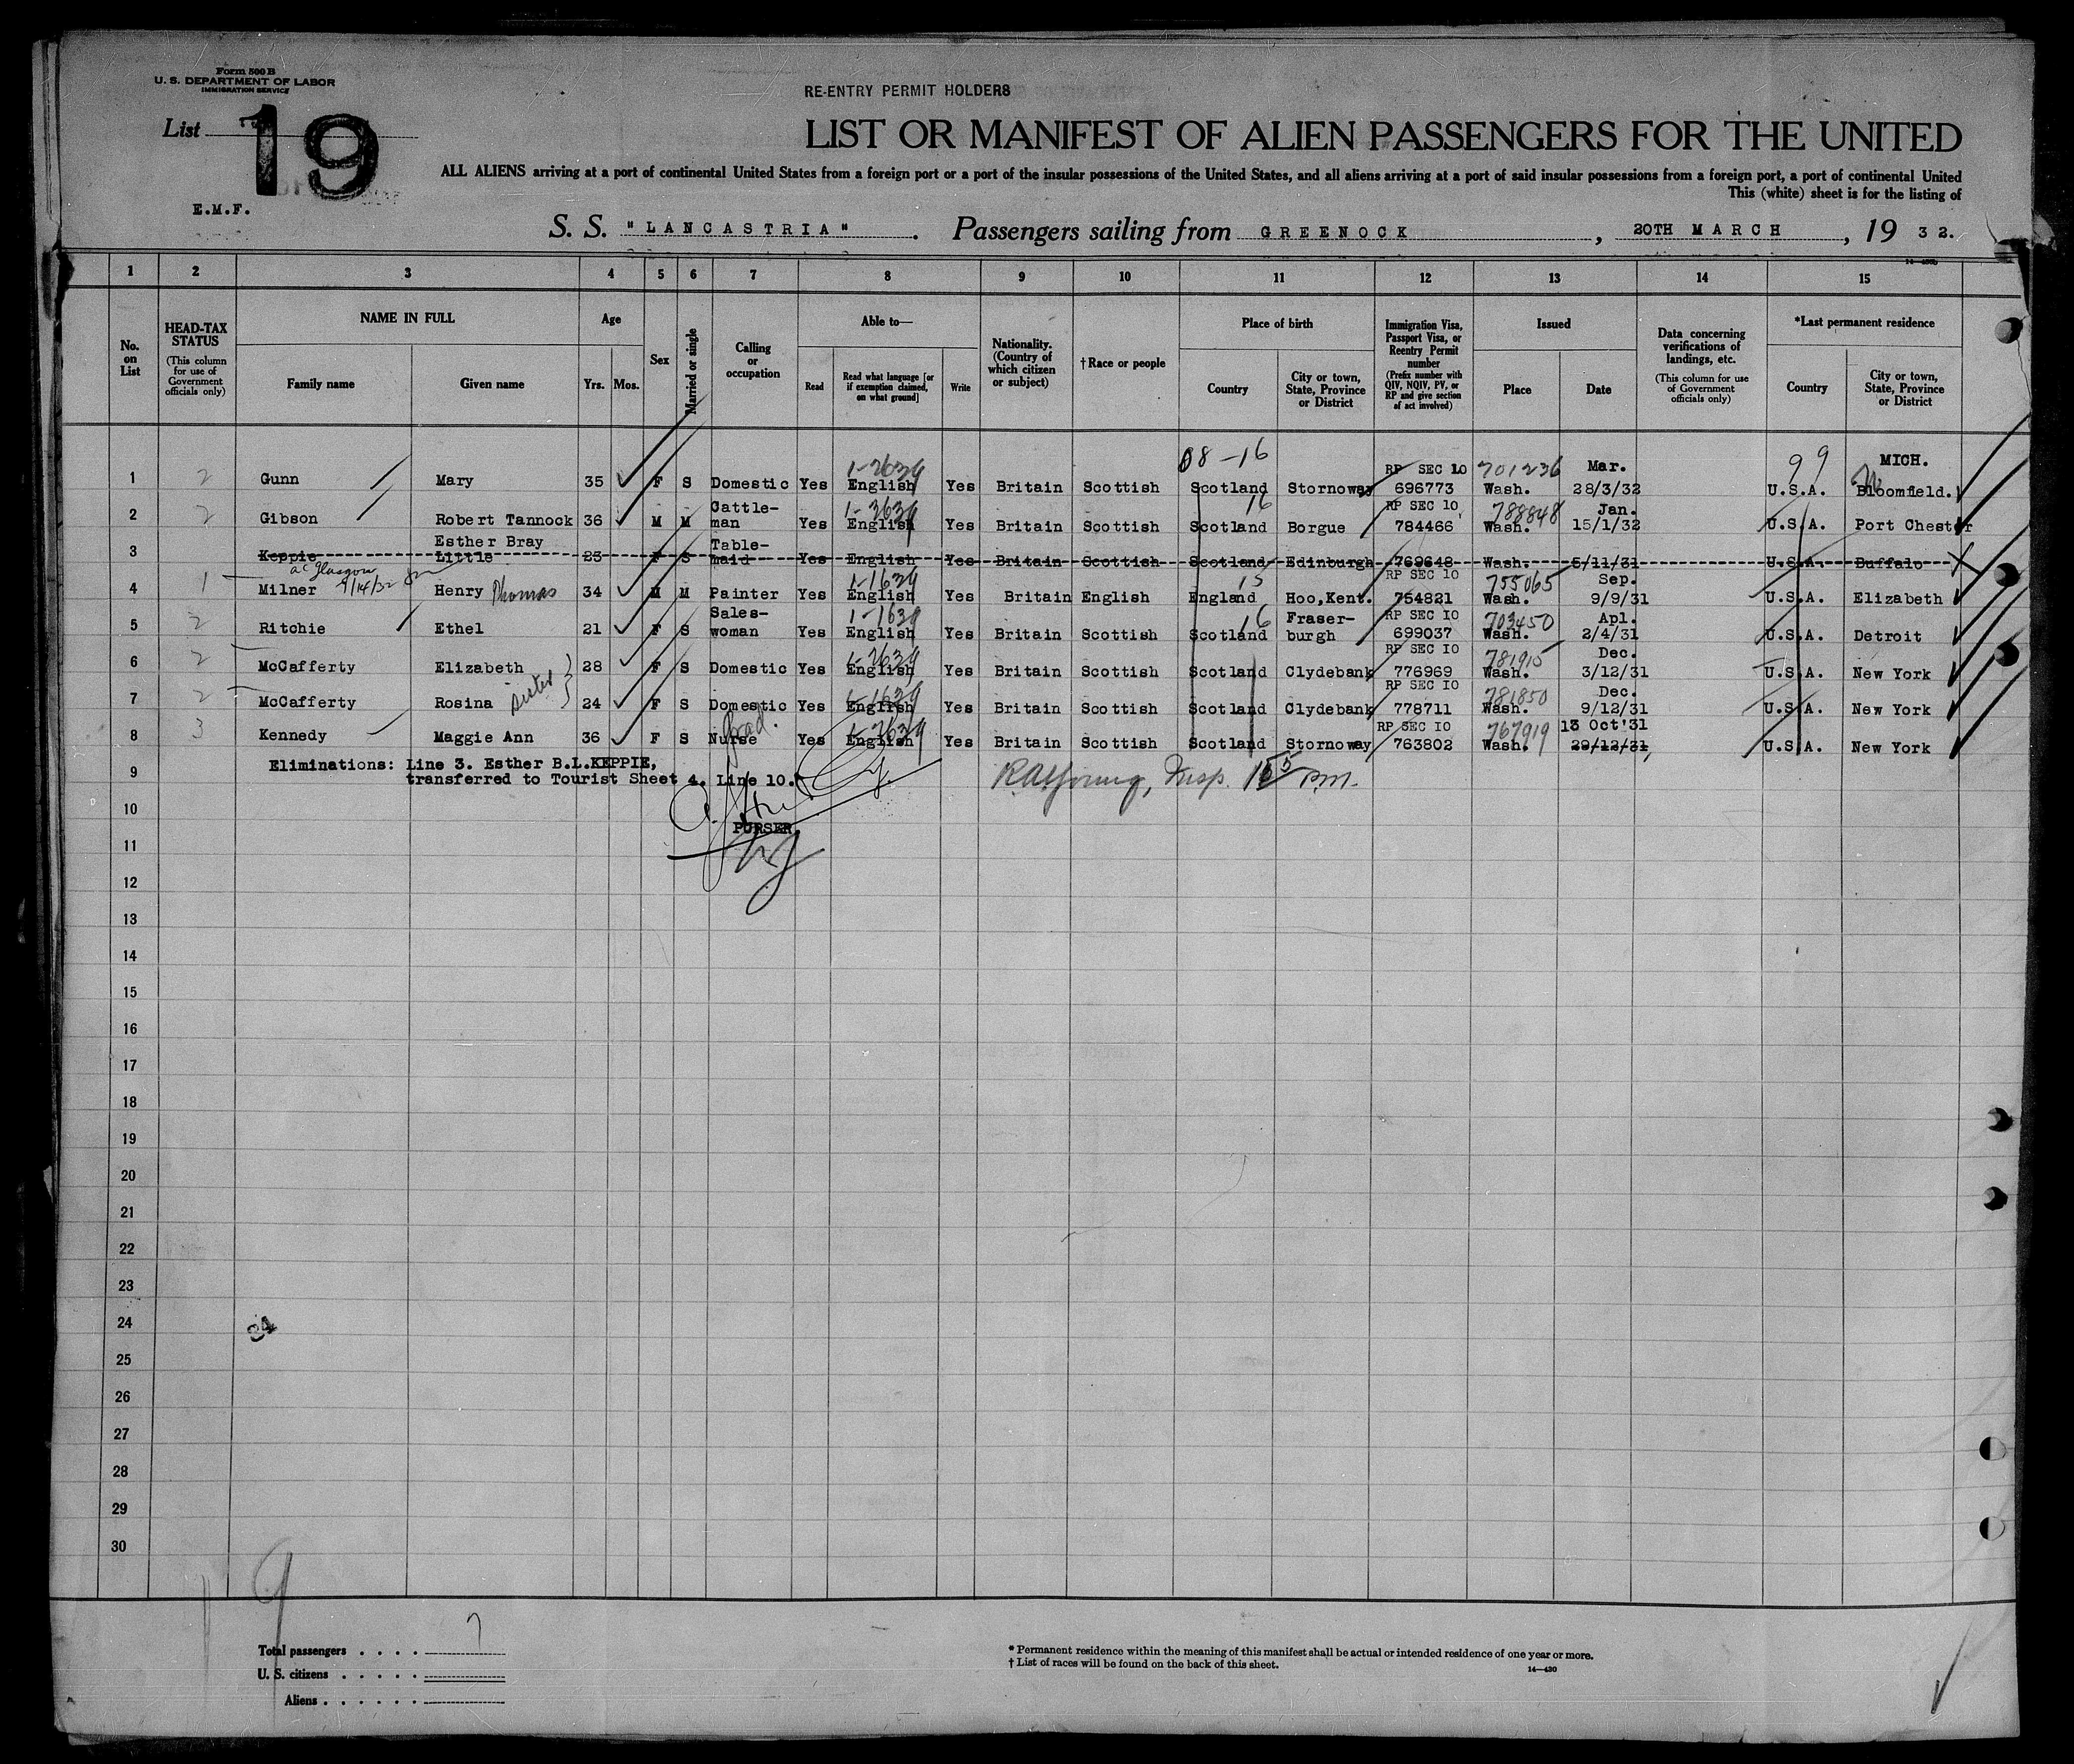 Form 500 B
U. S. DEPARTMENT OF LABOR
IMMIGRATION SERVICE
RE-ENTRY PERMIT HOLDERS
List 19
LIST OR MANIFEST OF ALIEN PASSENGERS FOR THE UNITED
ALL ALIENS arriving at a port of continental United States from a foreign port or a port of the insular possessions of the United States, and all aliens arriving at a port of said insular possessions from a foreign port, a port of continental United
This (white) sheet is for the listing of
E.M.F.
S. S. "LANCASTRIA". Passengers sailing from GREENOCK, 20TH MARCH, 19 32.
1 2 3 4 5 6 7 8 9 10 11 12 13 14 15
No. on List
HEAD-TAX STATUS
(This column for use of Government officials only)
NAME IN FULL
Family name Given name
Age
Yrs. Mos.
Sex
Married or single
Calling or occupation
Able to—
Read
Read what language [or if exemption claimed, on what ground]
Write
Nationality. (Country of which citizen or subject)
†Race or people
Place of birth
Country
City or town, State, Province or District
Immigration Visa, Passport Visa, or Reentry Permit number
(Prefix number with QIV, NQIV, PV, or RP and give section of act involved)
Issued
Place Date
Data concerning verifications of landings, etc.
(This column for use of Government officials only)
*Last permanent residence
Country
City or town, State, Province or District
08-16 RP SEC 10 701236 Mar. 99 MICH.
1 2 Gunn Mary 35 F S Domestic Yes English Yes Britain Scottish Scotland Stornoway 696773 Wash. 28/3/32 U.S.A. Bloomfield.
Cattle- 16 RP SEC 10 788848 Jan.
2 2 Gibson Robert Tannock 36 M M man Yes English Yes Britain Scottish Scotland Borgue 784466 Wash. 15/1/32 U.S.A. Port Chester
Esther Bray Table-
3 Keppie Little 23 F S maid Yes English Yes Britain Scottish Scotland Edinburgh 769648 Wash. 5/11/31 U.S.A. Buffalo
Glasgow 9/14/32 15 RP SEC 10 755065 Sep.
4 1 Milner Henry Thomas 34 M M Painter Yes English Yes Britain English England Hoo,Kent. 754821 Wash. 9/9/31 U.S.A. Elizabeth
Sales- 16 Fraser- RP SEC 10 703450 Apl.
5 2 Ritchie Ethel 21 F S woman Yes English Yes Britain Scottish Scotland burgh 699037 Wash. 2/4/31 U.S.A. Detroit
RP SEC 10 781915 Dec.
6 2 McCafferty Elizabeth 28 F S Domestic Yes English Yes Britain Scottish Scotland Clydebank 776969 Wash. 3/12/31 U.S.A. New York
RP SEC 10 781850 Dec.
7 2 McCafferty Rosina sister 24 F S Domestic Yes English Yes Britain Scottish Scotland Clydebank 778711 Wash. 9/12/31 U.S.A. New York
Grad. RP SEC 10 767919 13 Oct'31
8 3 Kennedy Maggie Ann 36 F S Nurse Yes English Yes Britain Scottish Scotland Stornoway 763802 Wash. 29/12/31, U.S.A. New York
9 Eliminations: Line 3. Esther B.L.KEPPIE,
transferred to Tourist Sheet 4. Line 10.
Insp. pm.
10
PURSER
11
12
13
14
15
16
17
18
19
20
21
22
23
24
25
26
27
28
29
30
9
Total passengers 7
U. S. citizens
Aliens
* Permanent residence within the meaning of this manifest shall be actual or intended residence of one year or more.
† List of races will be found on the back of this sheet.
14—430